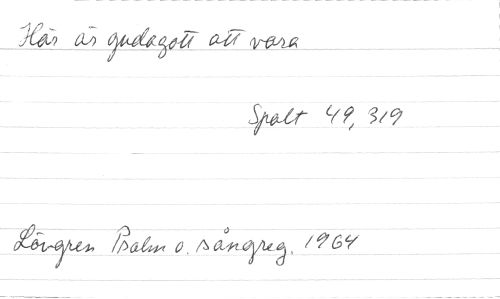 Här är gudagott att vara
Spalt 49, 319
Lövgren Psalm o. sångreg. 1964